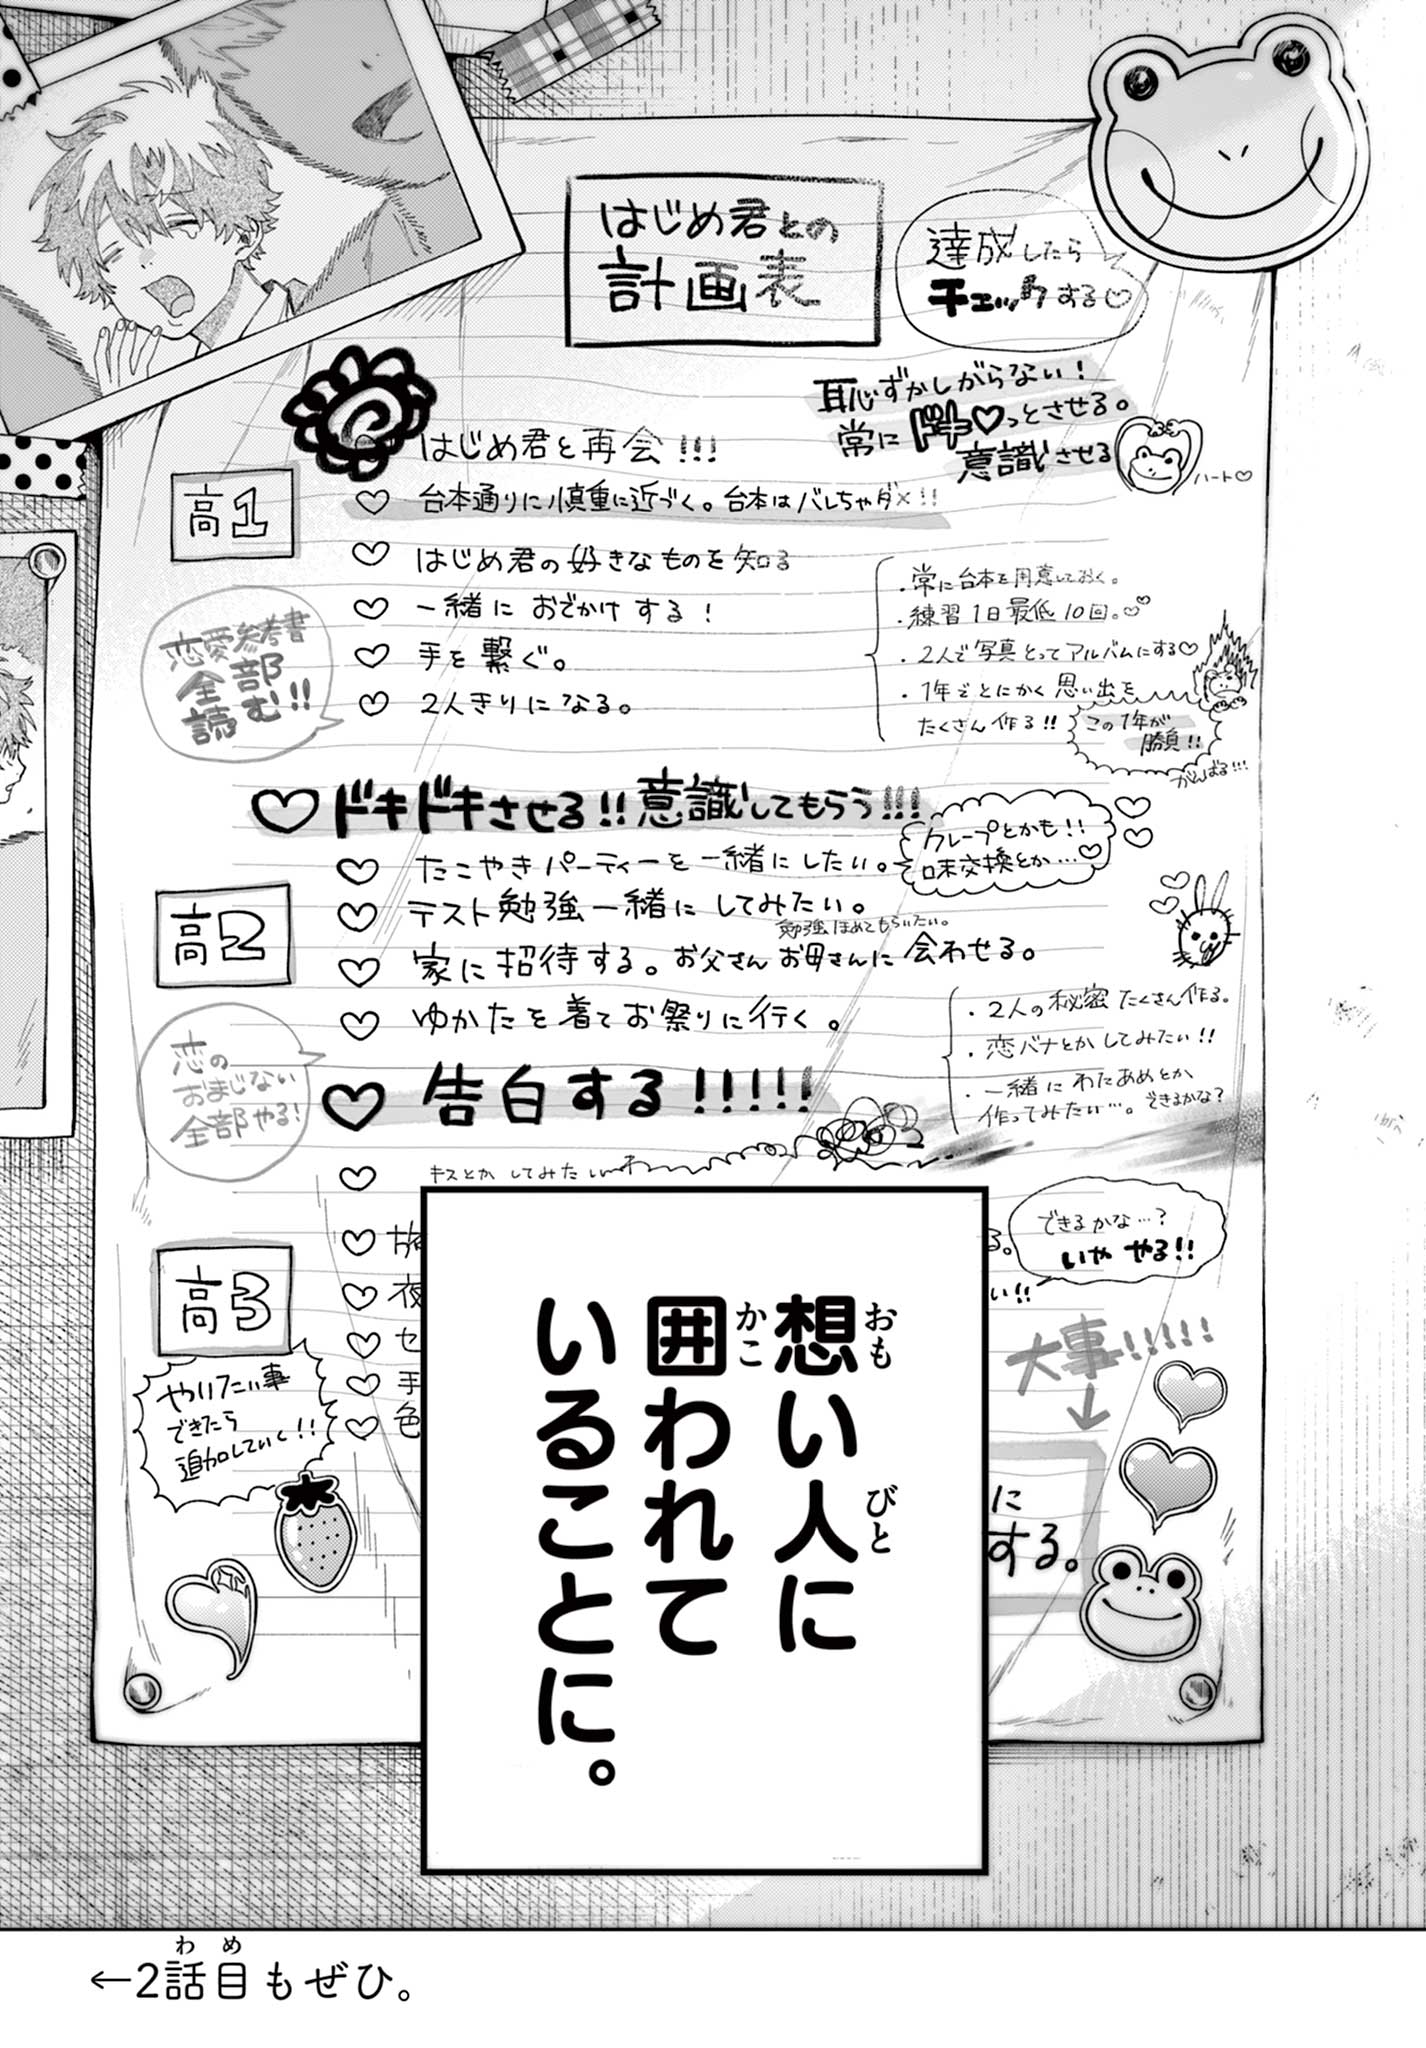 はじめ君との
計画表
達成したら
チェックする♡
恥ずかしがらない!
常にドキ♡っとさせる。
意識させる
ハート♡
はじめ君と再会!!!
高1
♡ 台本通りに慎重に近づく。台本はバレちゃダメ!!
♡ はじめ君の好きなものを知る
♡ 一緒におでかけする!
♡ 手を繋ぐ。
♡ 2人きりになる。
恋愛参考書
全部
読む!!
・常に台本を用意しておく。
・練習1日最低10回。♡♡
・2人で写真とってアルバムにする♡
・1年でとにかく思い出を
たくさん作る!!
この1年が
勝負!!
がんばる!!!
♡ドキドキさせる!!意識してもらう!!!
♡ たこやきパーティーを一緒にしたい。
クレープとかも!!
味交換とか…♡
高2
♡ テスト勉強一緒にしてみたい。
勉強ほめてもらいたい。
♡ 家に招待する。お父さんお母さんに会わせる。
♡ ゆかたを着てお祭りに行く。
・2人の秘密たくさん作る。
・恋バナとかしてみたい!!
・一緒にわたあめとか
作ってみたい…。できるかな?
恋の
おまじない
全部やる!
♡ 告白する!!!!!
♡ キスとかしてみたい
高3
♡ 旅
る。
できるかな…?
いや やる!!
♡ 夜
い!!
♡ セ
♡ 手
♡ 色
やりたい事
できたら
追加していく!!
大事!!!!!
↓
に
する。
想い人に
おも
びと
囲われて
かこ
いることに。
←2話目もぜひ。
わめ